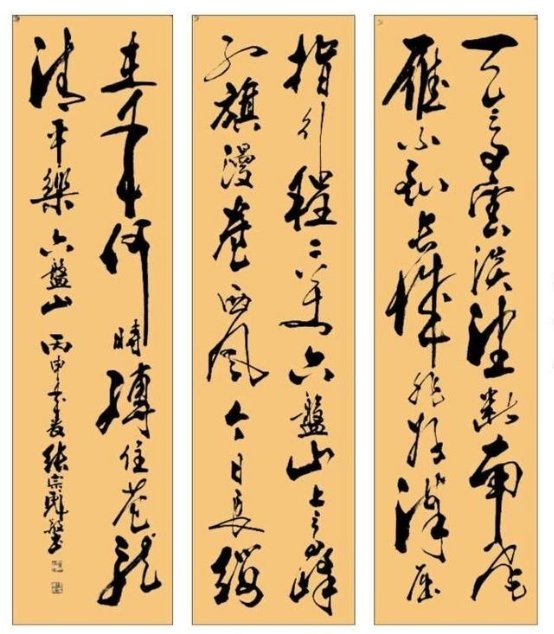 天高雲淡望斷南飛
雁不到長城非好漢屈
指行程二萬六盤山上高峰
紅旗漫卷西風今日長纓
在手何時縛住蒼龍
清平樂六盤山 丙申張宗